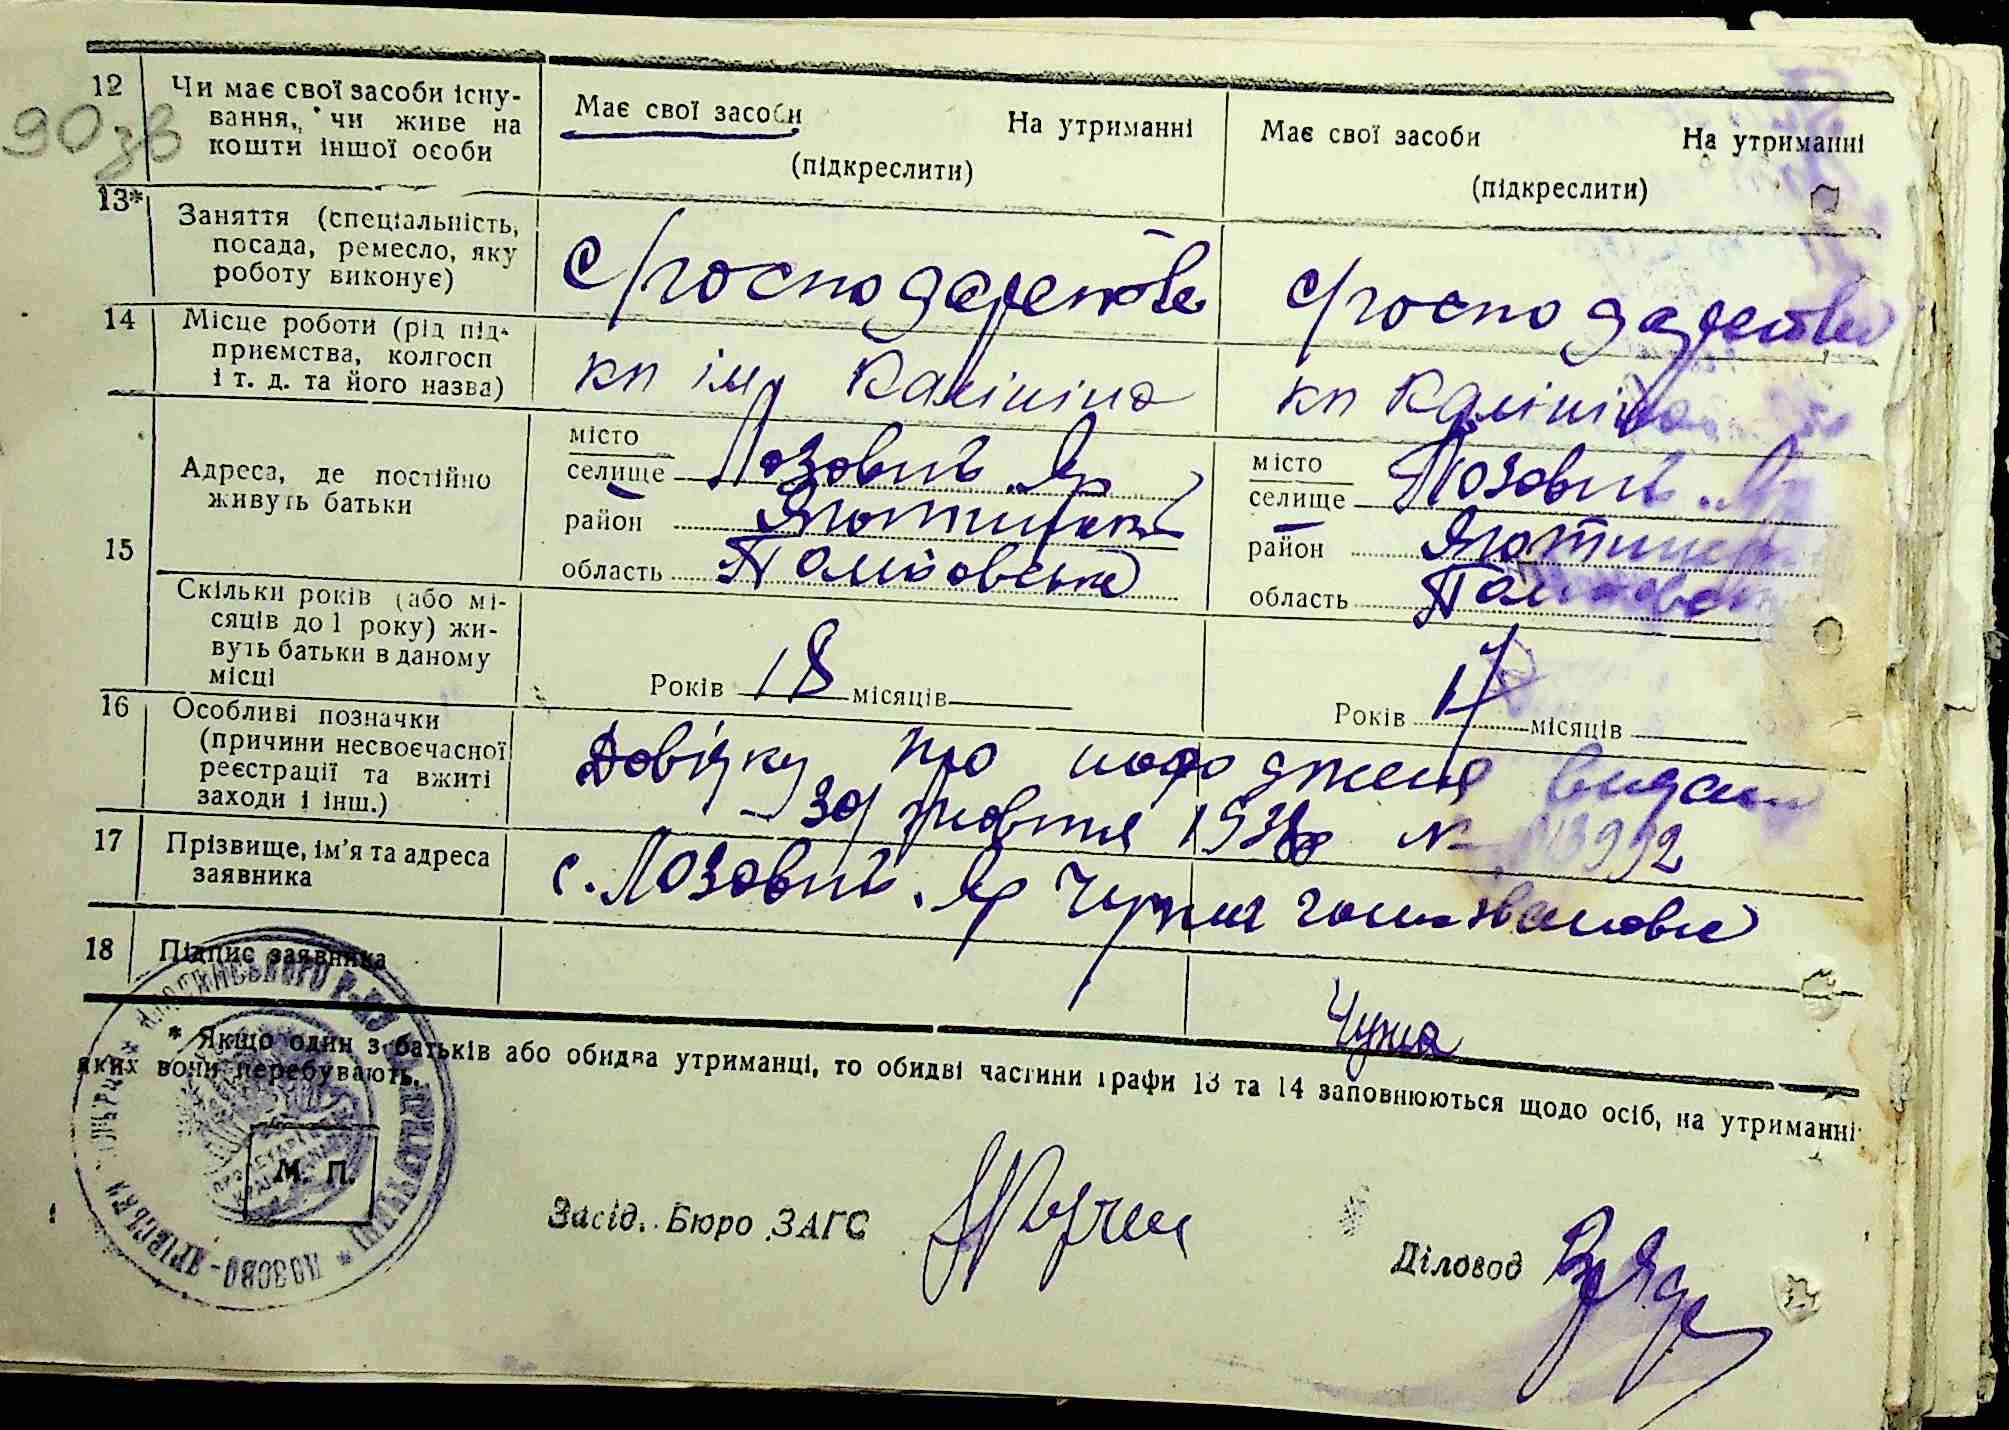 90 зв
12 Чи має свої засоби існу-
вання, чи живе на
кошти іншої особи
Має свої засоби На утриманні
(підкреслити)
Має свої засоби На утриманні
(підкреслити)
13* Заняття (спеціальність,
посада, ремесло, яку
роботу виконує)
с/господарство
с/господарство
14 Місце роботи (рід під-
приємства, колгосп
і т. д. та його назва)
кп ім Калініна
кп Калініна
15 Адреса, де постійно
живуть батьки
місто
селище Лозовий Яр
район Яготинськ
область Полтовська
місто
селище Лозовий Яр
район Яготинськ
область
Скільки років (або мі-
сяців до 1 року) жи-
вуть батьки в даному
місці
Років 18 місяців
Років 17 місяців
16 Особливі позначки
(причини несвоєчасної
реєстрації та вжиті
заходи і інш.)
Довідку про народженя видано
30 жовтня
17 Прізвище, ім'я та адреса
заявника
с. Лозовий Яр
18 Підпис заявника
* Якщо один з батьків або обидва утриманці, то обидві частини графи 13 та 14 заповнюються щодо осіб, на утриманні
яких вони перебувають.
М. П.
ЛОЗОВО-ЯРІВСЬКА
Засід. Бюро ЗАГС
Діловод